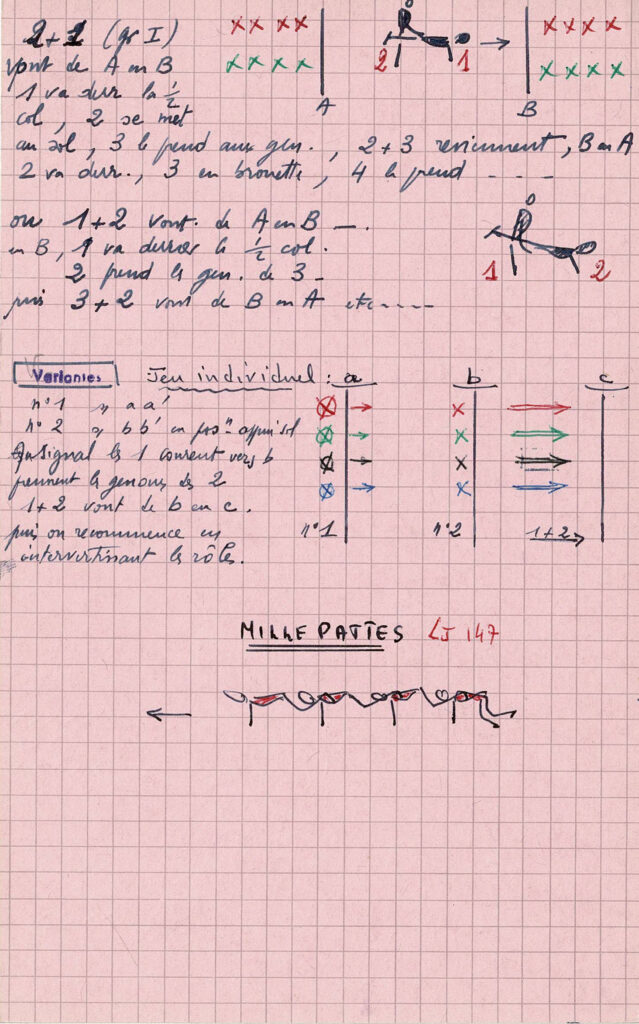 2+1 (gr I)
vont de A en B
1 va derr la ½
col, 2 se met
au sol, 3 le prend aux gen., 2+3 reviennent, B en A
2 va derr., 3 en brouette, 4 le prend - - - -
2 1
A B
ou 1+2 vont de A en B —.
en B, 1 va derrière la ½ col.
2 prend les gen. de 3 -
puis 3+2 vont de B en A etc - - - -
1 2
Variantes Jeu individuel : a b c
n°1 en a a'
n°2 en b b' en pos^n appui sol
Au signal les 1 courent vers b
prennent les genoux des 2
1+2 vont de b en c.
puis on recommence en
intervertissant les rôles.
n°1 n°2 1+2
MILLE PATTES LJ 147